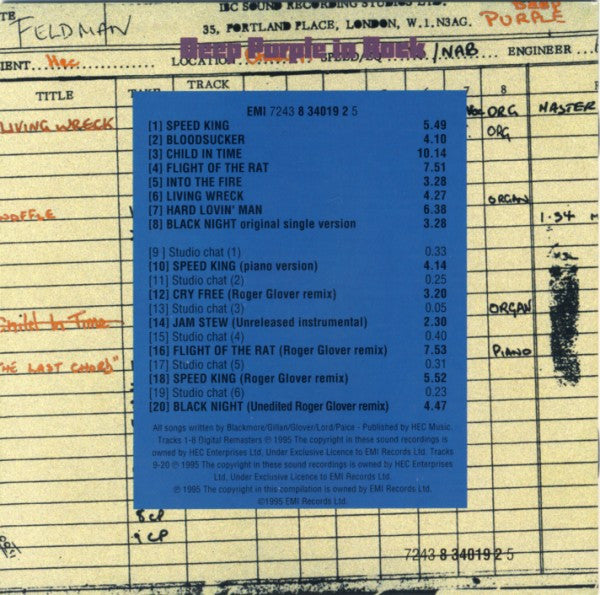 IBC SOUND RECORDING STUDIOS LTD.
35, PORTLAND PLACE, LONDON, W.1.N3AG.
FELDMAN
DEEP PURPLE
Deep Purple in Rock
LOCATION
SPEED/EQ
/NAB
ENGINEER
TRACK
TITLE
7
8
LIVING WRECK
ORG
MASTER
ORG
ORGAN
1.34
Child In Time
ORGAN
PIANO
THE LAST CHORD"
EMI 7243 8 34019 2 5
[1] SPEED KING 5.49
[2] BLOODSUCKER 4.10
[3] CHILD IN TIME 10.14
[4] FLIGHT OF THE RAT 7.51
[5] INTO THE FIRE 3.28
[6] LIVING WRECK 4.27
[7] HARD LOVIN' MAN 6.38
[8] BLACK NIGHT original single version 3.28
[9] Studio chat (1) 0.33
[10] SPEED KING (piano version) 4.14
[11] Studio chat (2) 0.25
[12] CRY FREE (Roger Glover remix) 3.20
[13] Studio chat (3) 0.05
[14] JAM STEW (Unreleased instrumental) 2.30
[15] Studio chat (4) 0.40
[16] FLIGHT OF THE RAT (Roger Glover remix) 7.53
[17] Studio chat (5) 0.31
[18] SPEED KING (Roger Glover remix) 5.52
[19] Studio chat (6) 0.23
[20] BLACK NIGHT (Unedited Roger Glover remix) 4.47
All songs written by Blackmore/Gillan/Glover/Lord/Paice - Published by HEC Music.
Tracks 1-8 Digital Remasters ℗ 1995 The copyright in these sound recordings is
owned by HEC Enterprises Ltd. Under Exclusive Licence to EMI Records Ltd. Tracks
9-20 ℗ 1995 The copyright in these sound recordings is owned by HEC Enterprises
Ltd, Under Exclusive Licence to EMI Records Ltd.
℗ 1995 The copyright in this compilation is owned by EMI Records Ltd.
©1995 EMI Records Ltd.
8 CP
9 CP
7243 8 34019 2 5